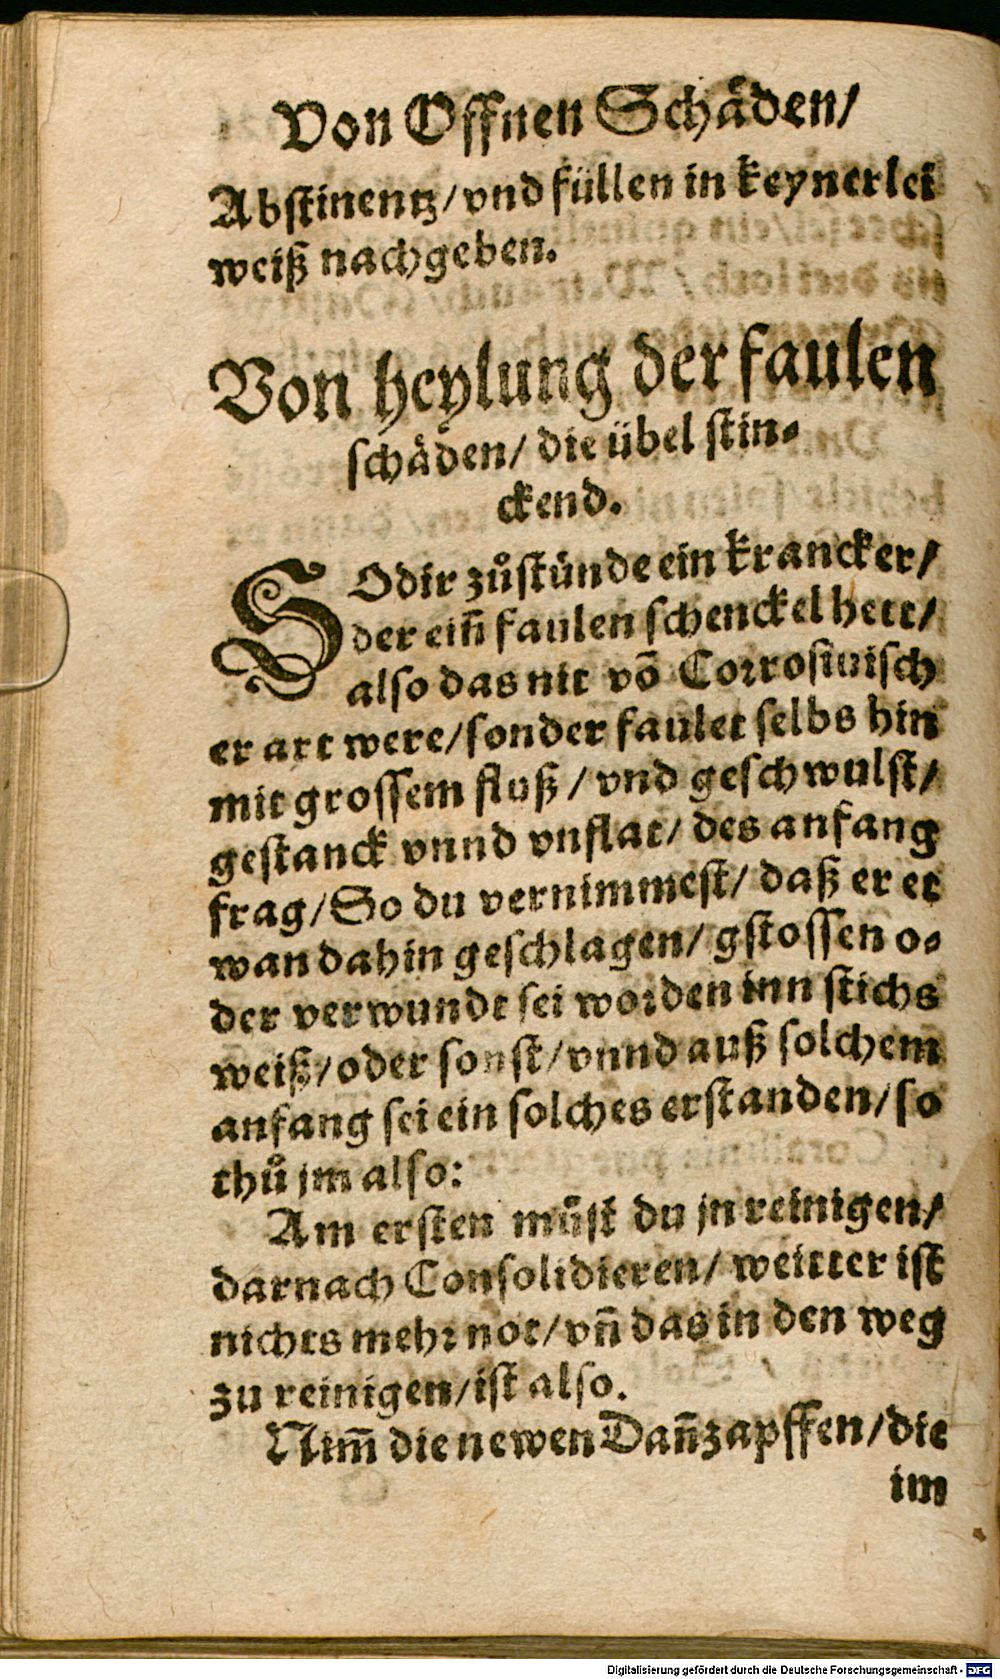 Von Offnen Schäden/
Abstinentz/vnd füllen in keynerlei
weiß nachgeben.
Von heylung der faulen
schäden/ die übel stin⸗
ckend.
SOdir zůstünde ein krancker/
der eiñ faulen schenckel hett/
also das nit võ Corrosiuisch
er art were/sonder faulet selbs hin
mit grossem fluß/ vnd geschwulst/
gestanck vnnd vnflat/ des anfang
frag/So du vernimmest/ daß er et
wan dahin geschlagen/ gstossen o⸗
der verwundt sei worden inn stichs
weiß/oder sonst/vnnd auß solchem
anfang sei ein solches erstanden/so
thů jm also:
Am ersten můst du jn reinigen/
darnach Consolidieren/ weitter ist
nichts mehr not/vñ das in den weg
zu reinigen/ist also.
Nim̃ die newen Dañzapffen/die
im
Digitalisierung gefördert durch die Deutsche Forschungsgemeinschaft - DFG